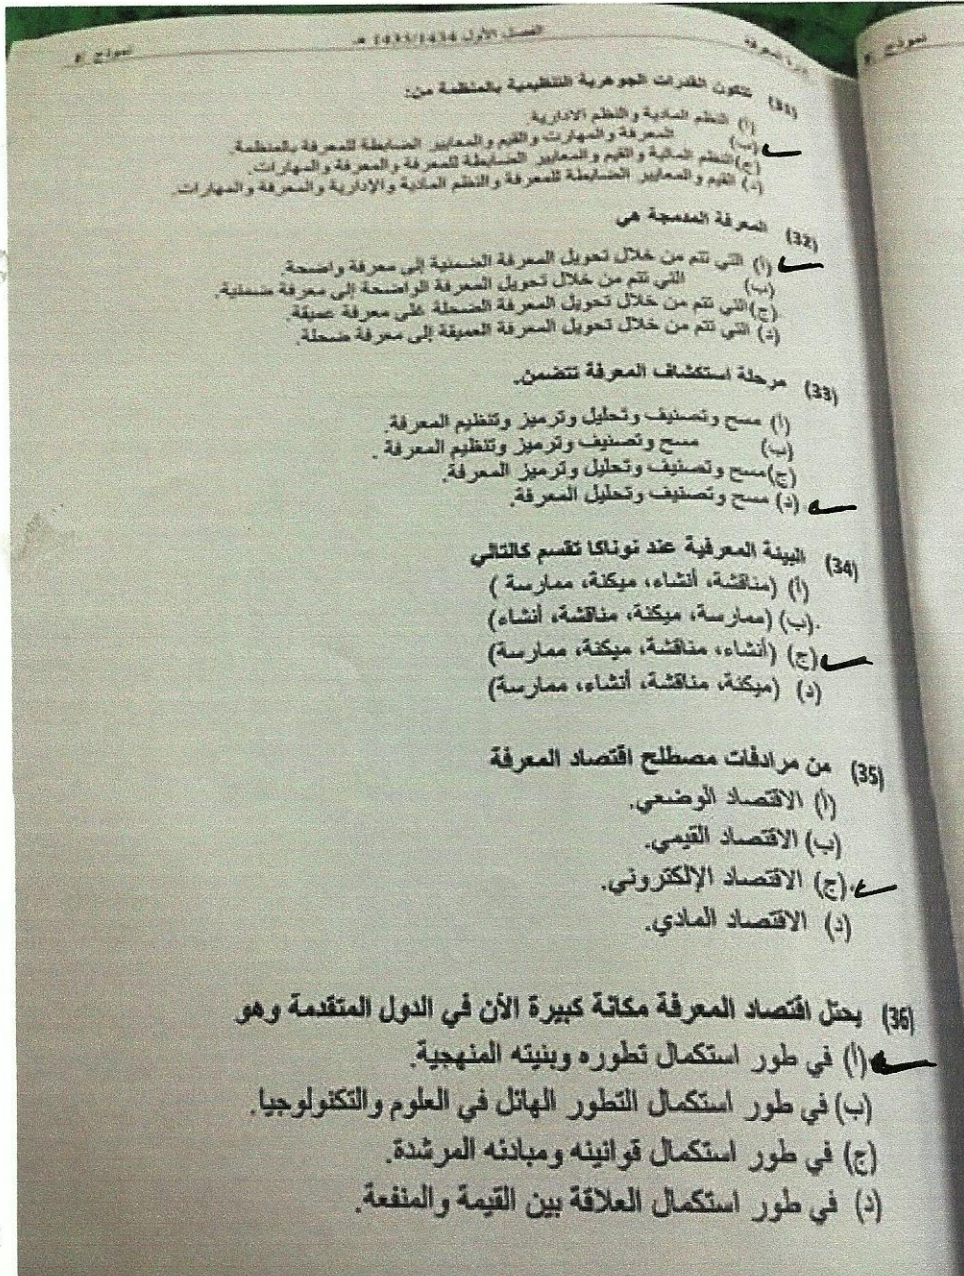 نموذج F
الفصل الأول 1433/1434 هـ
إدارة المعرفة
نموذج
(31) تتكون القدرات الجوهرية التنظيمية بالمنظمة من:
(أ) النظم المادية والنظم الادارية.
(ب) المعرفة والمهارات والقيم والمعايير الضابطة للمعرفة بالمنظمة.
(ج) النظم المالية والقيم والمعايير الضابطة للمعرفة والمعرفة والمهارات.
(د) القيم والمعايير الضابطة للمعرفة والنظم المادية والإدارية والمعرفة والمهارات.
(32) المعرفة المدمجة هي
(أ) التي تتم من خلال تحويل المعرفة الضمنية إلى معرفة واضحة.
(ب) التي تتم من خلال تحويل المعرفة الواضحة إلى معرفة ضمنية.
(ج) التي تتم من خلال تحويل المعرفة الضحلة على معرفة عميقة.
(د) التي تتم من خلال تحويل المعرفة العميقة إلى معرفة ضحلة.
(33) مرحلة استكشاف المعرفة تتضمن.
(أ) مسح وتصنيف وتحليل وترميز وتنظيم المعرفة.
(ب) مسح وتصنيف وترميز وتنظيم المعرفة .
(ج) مسح وتصنيف وتحليل وترميز المعرفة.
(د) مسح وتصنيف وتحليل المعرفة.
(34) البيئة المعرفية عند نوناكا تقسم كالتالي
(أ) (مناقشة، أنشاء، ميكنة، ممارسة )
.(ب) (ممارسة، ميكنة، مناقشة، أنشاء)
(ج) (أنشاء، مناقشة، ميكنة، ممارسة)
(د) (ميكنة، مناقشة، أنشاء، ممارسة)
(35) من مرادفات مصطلح اقتصاد المعرفة
(أ) الاقتصاد الوضعي.
(ب) الاقتصاد القيمي.
.(ج) الاقتصاد الإلكتروني.
(د) الاقتصاد المادي.
(36) يحتل اقتصاد المعرفة مكانة كبيرة الأن في الدول المتقدمة وهو
(أ) في طور استكمال تطوره وبنيته المنهجية.
(ب) في طور استكمال التطور الهائل في العلوم والتكنولوجيا.
(ج) في طور استكمال قوانينه ومبادئه المرشدة.
(د) في طور استكمال العلاقة بين القيمة والمنفعة.